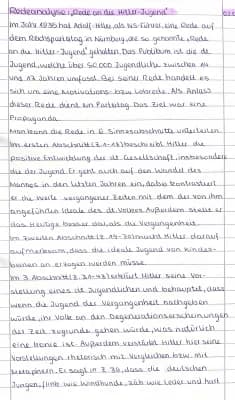 Redeanalyse: „Rede an die Hitler-Jugend"
Im Jahr 1935 hat Adolf Hitler, als NS-Führer, eine Rede auf
dem Reichsparteitag in Nürnberg, die so genannte „Rede
an die Hitler-Jugend" gehalten. Das Publikum ist die dt.
Jugend, welche über 50.000 Jugendliche zwischen 14
und 17 Jahren umfasst. Bei seiner Rede handelt es
sich um eine Motivations- bzw. Lobrede. Als Anlass
dieser Rede dient ein Parteitag. Das Ziel war eine
Propaganda.
Man kann die Rede in 6 Sinnesabschnitte unterteilen.
Im ersten Abschnitt (Z. 1-13) beschreibt Hitler die
positive Entwicklung der dt. Gesellschaft, insbesondere
die der Jugend. Er geht auch auf den Wandel des
Mannes in den letzten Jahren ein, dabei kontrastiert
er die Werte vergangener Zeiten mit dem der von ihm
angeführten Ideale des dt. Volkes. Außerdem stellt er
das Heutige besser dar, als die Vergangenheit.
Im zweiten Abschnitt macht Hitler darauf
aufmerksam, dass die ideale Jugend von Kindes-
beinen an erzogen werden müsse.
Im 3. Abschnitt erläutert Hitler seine Vor-
stellung eines dt. Jugendlichen und behauptet, dass
wenn die Jugend der Vergangenheit nachgehen
würde, ihr Volk an den Degenerationserscheinungen
der Zeit zugrunde gehen würde, was natürlich
eine Ironie ist. Außerdem verstärkt Hitler hier seine
Vorstellungen rhetorisch mit Vergleichen bzw. mit
Metaphern. Er sagt in Z. 36, dass die deutschen
Jungen „flink wie Windhunde, zäh wie Leder und hart